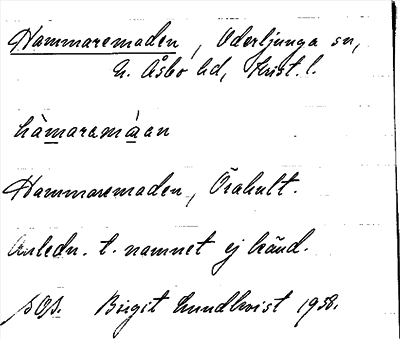 Hammaremaden, Oderljunga sn,
N. Åsbo hd, Krist. l.
hàmaramáan
Hammaremaden, Örahult.
Anledn. t. namnet ej känd.
sOp. Birgit Lundkvist 1958.